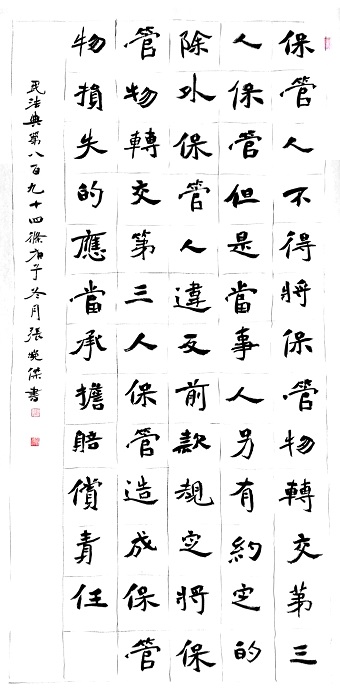 保管人不得將保管物轉交第三
人保管但是當事人另有約定的
除外保管人違反前款規定將保
管物轉交第三人保管造成保管
物損失的應當承擔賠償責任
民法典第八百九十四條庚子冬月張晓傑書